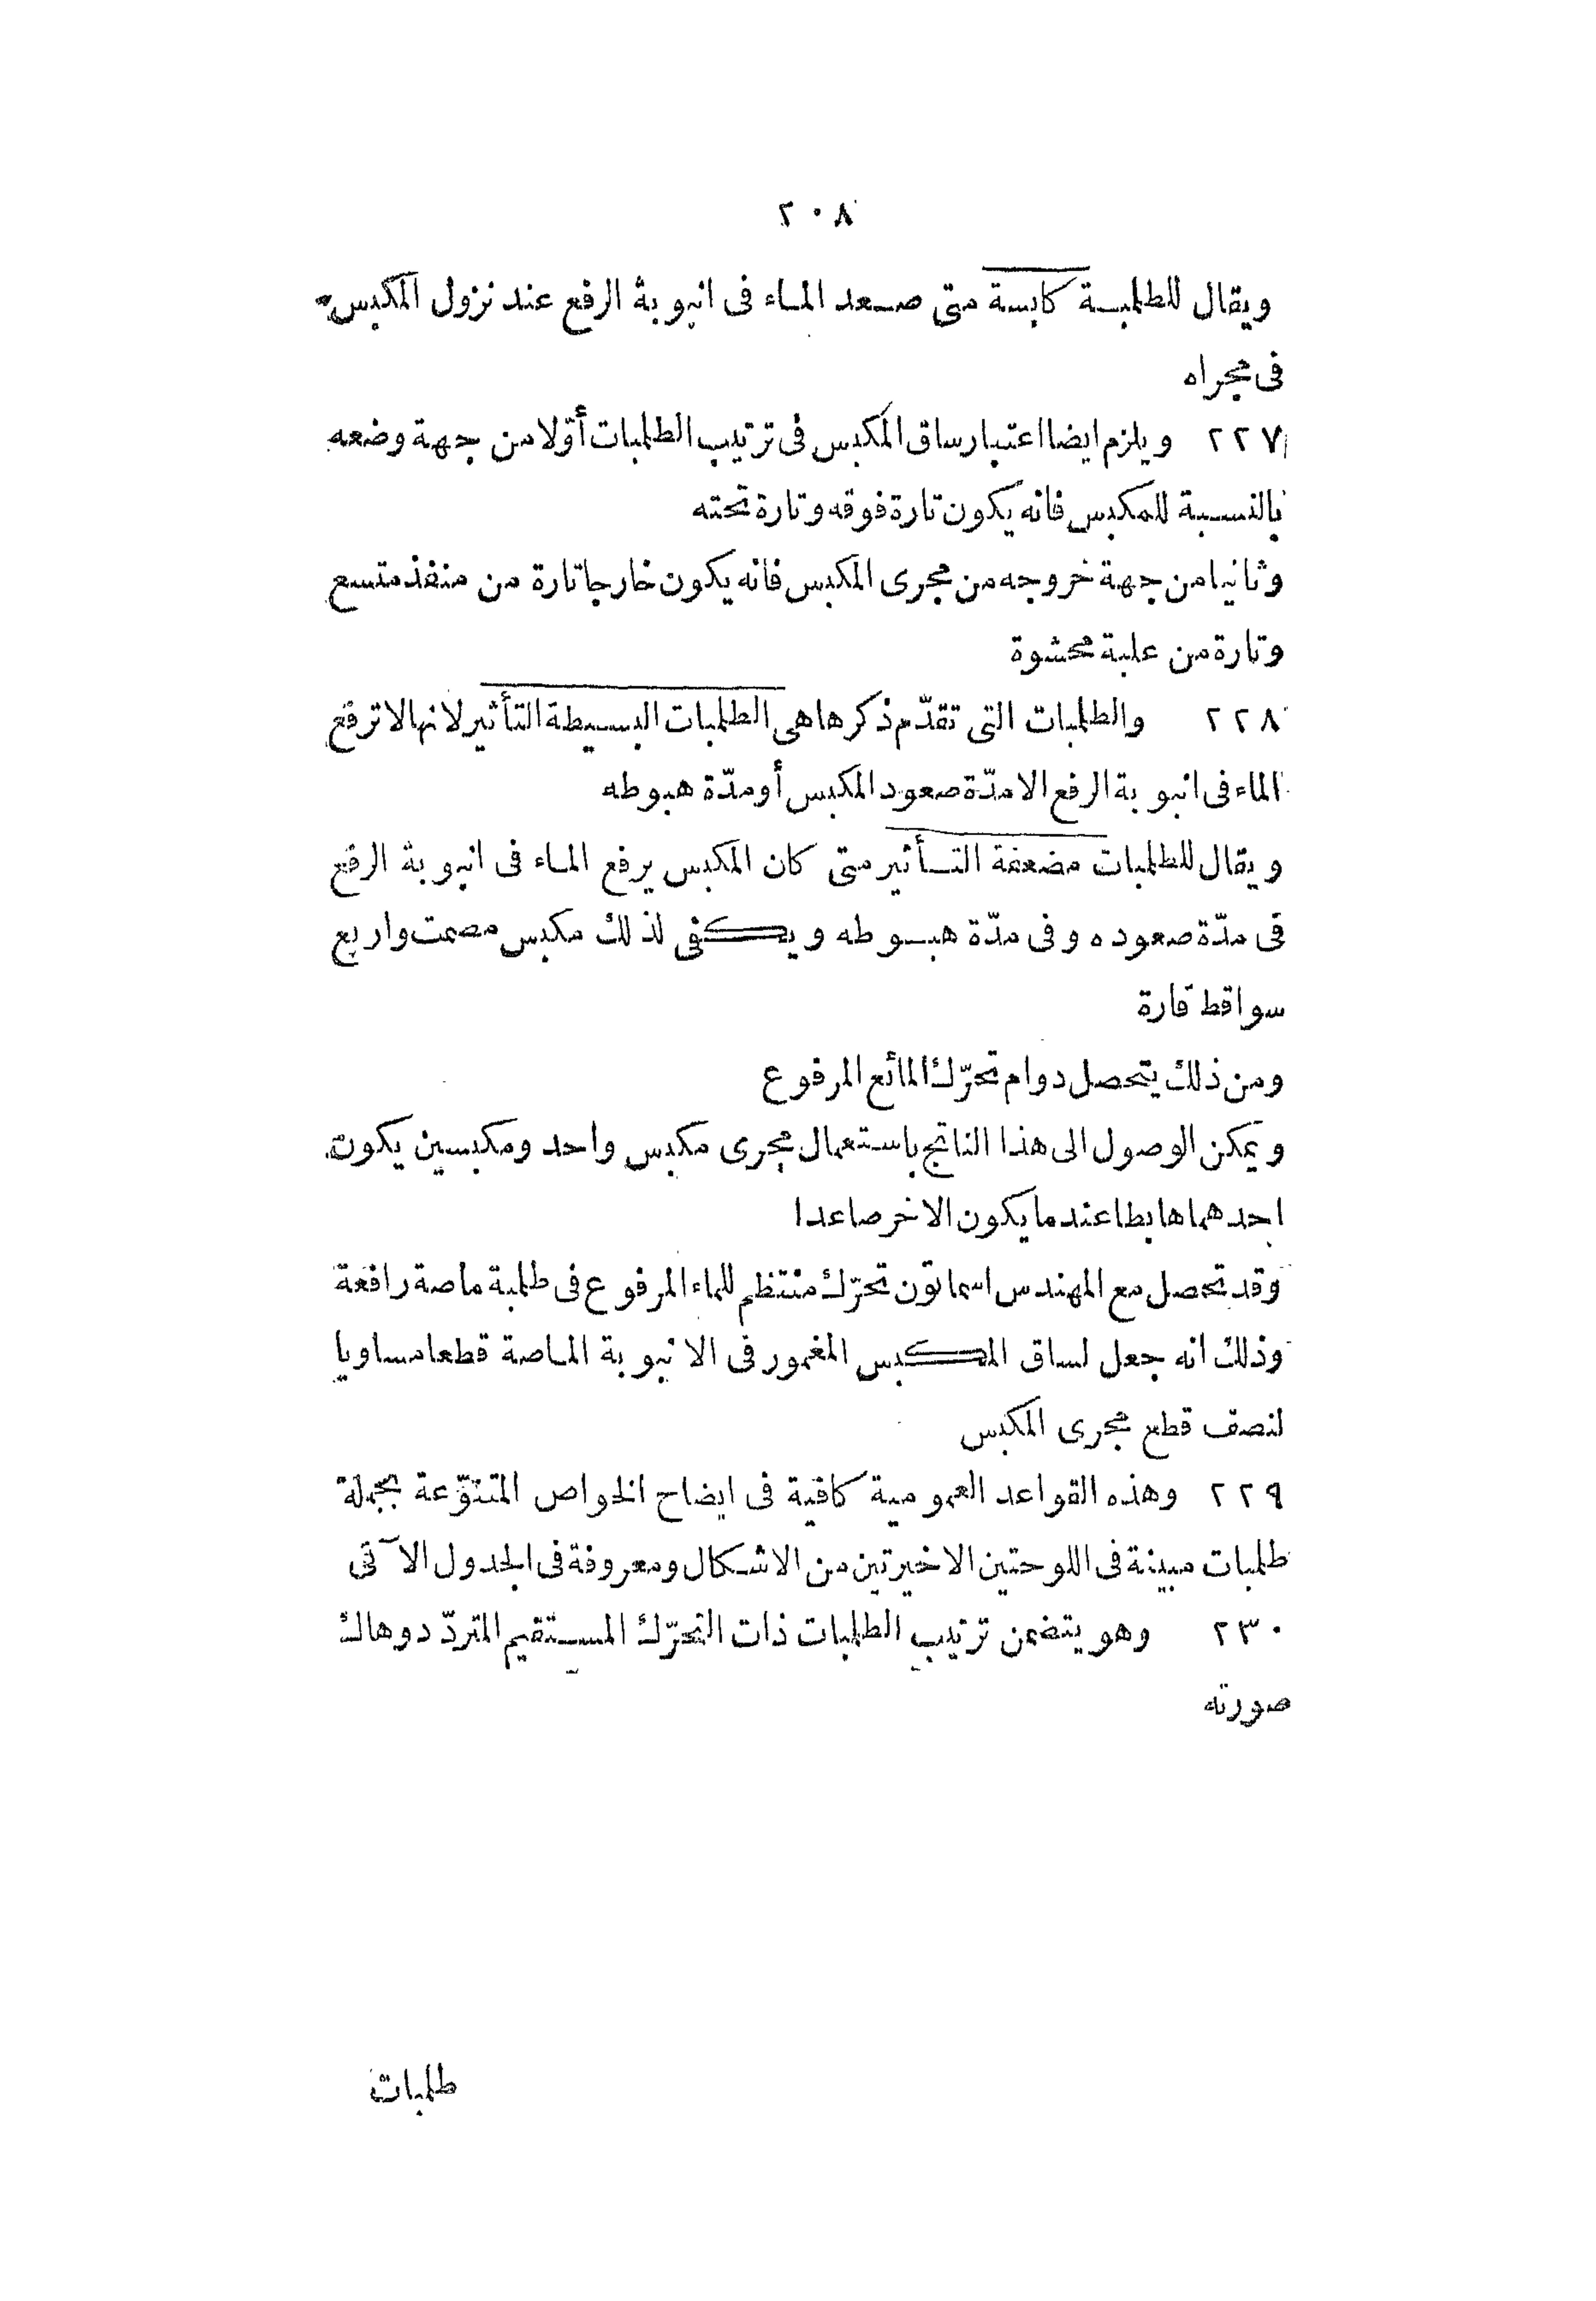 ٢٠٨
ويقال للطلمبة كابسة متى صعد الماء فى انبوبة الرفع عند نزول المكبس
فى مجراه
٢٢٧ ويلزم ايضا اعتبار ساق المكبس فى ترتيب الطلمبات أوّلا من جهة وضعه
بالنسبة للمكبس فانه يكون تارة فوقه وتارة تحته
وثانيا من جهة خروجه من مجرى المكبس فانه يكون خارجا تارة من منفذ متسع
وتارة من علبة محشوة
٢٢٨ والطلمبات التى تقدّم ذكرها هى الطلمبات البسيطة التأثير لانها لا ترفع
الماء فى انبوبة الرفع الا مدّة صعود المكبس أو مدّة هبوطه
ويقال للطلمبات مضعفة التأثير متى كان المكبس يرفع الماء فى انبوبة الرفع
فى مدّة صعوده وفى مدّة هبوطه ويكفى لذلك مكبس مصمت واربع
سواقط قارة
ومن ذلك يتحصل دوام تحرّك المائع المرفوع
ويمكن الوصول الى هذا الناتج باستعمال مجرى مكبس واحد ومكبسين يكون
احدهما هابطا عندما يكون الاخر صاعدا
وقد تحصل مع المهندس اسماتون تحرّك منتظم للماء المرفوع فى طلمبة ماصة رافعة
وذلك انه جعل لساق المكبس المغمور فى الانبوبة الماصة قطعا مساويا
لنصف قطع مجرى المكبس
٢٢٩ وهذه القواعد العمومية كافية فى ايضاح الخواص المتنوّعة بجملة
طلمبات مبينة فى اللوحتين الاخيرتين من الاشكال ومعروفة فى الجدول الآتى
٢٣٠ وهو يتضمن ترتيب الطلمبات ذات التحرّك المستقيم المتردّد وهاك
صورته
طلمبات